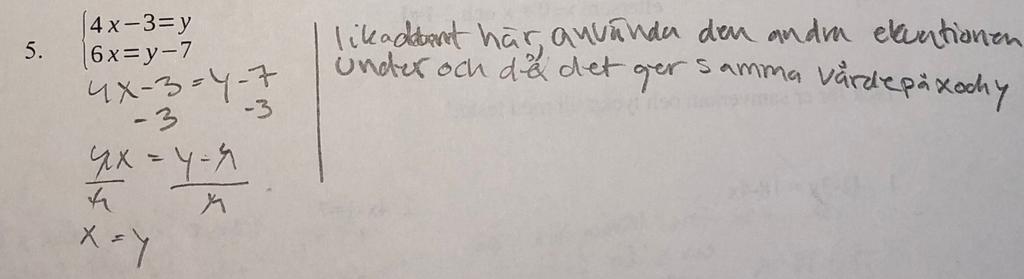 5. 4x-3=y
6x=y-7
4x-3=y-7
-3 -3
4x = y-4
4 4
x = y
här, använda den andra ekvationen
under och då det ger samma värde på x och y